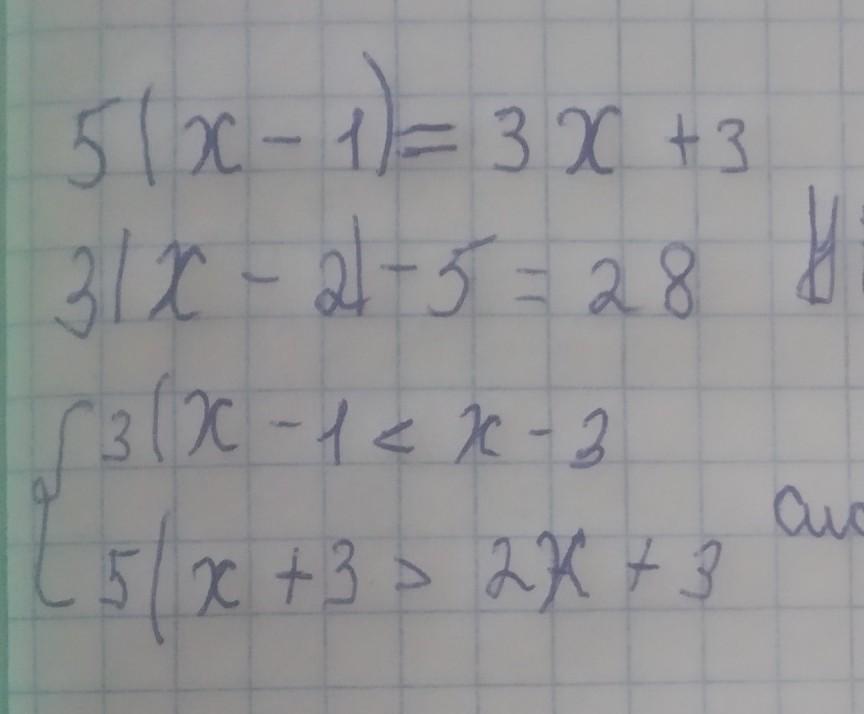 5(x-1)=3x+3
3(x-2)-5=28
{3(x-1<x-3
5(x+3>2x+3